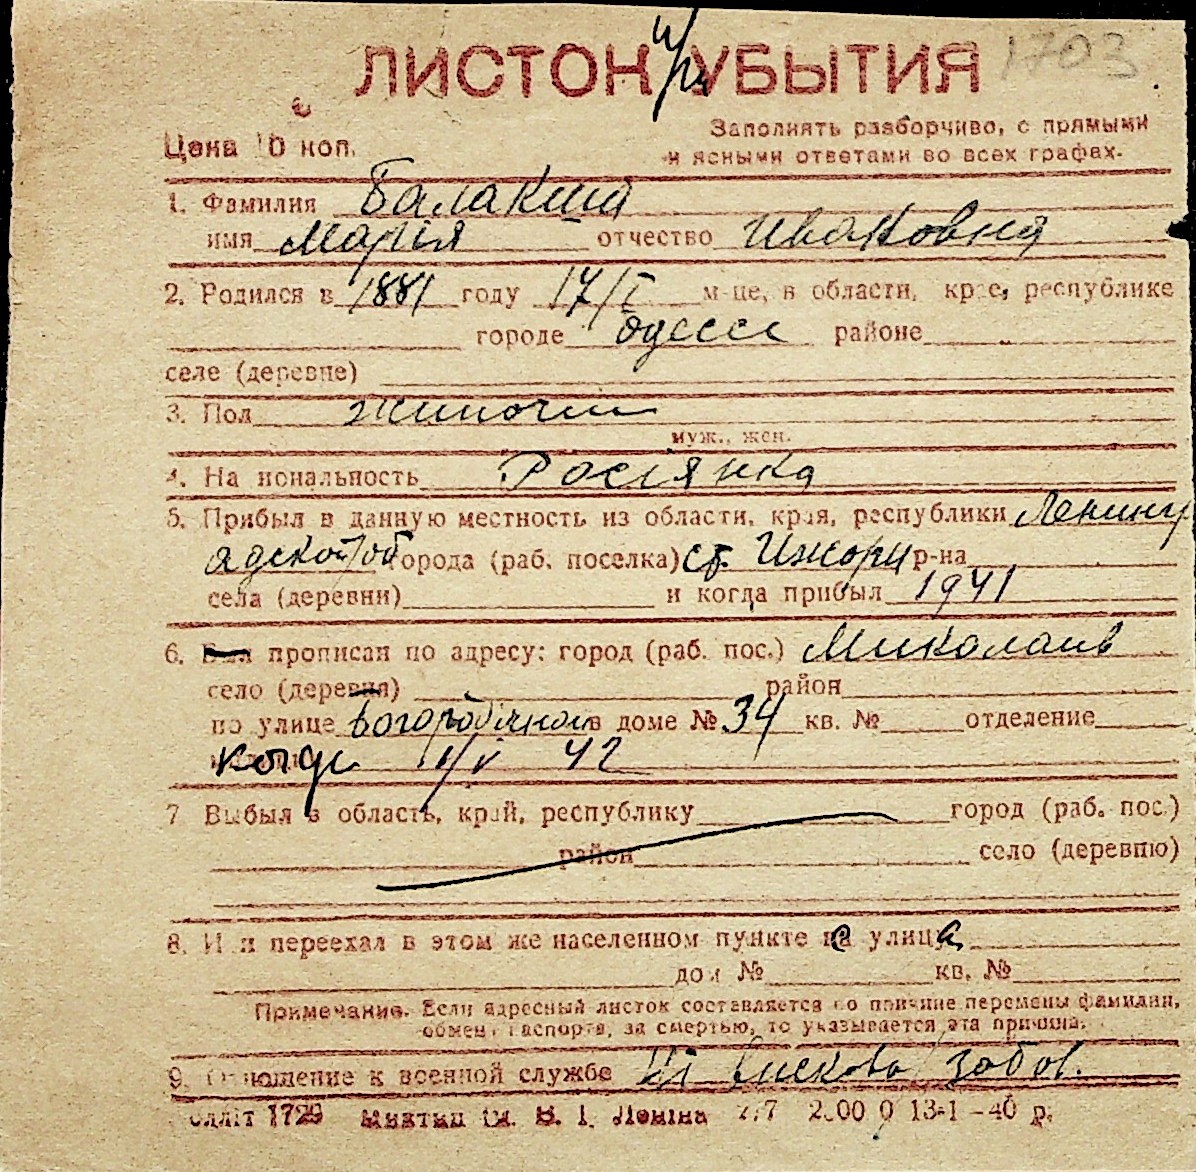 ЛИСТОК УБЫТИЯ 1703
Цена 10 коп.
Заполнять разборчиво, с прямыми
и ясными ответами во всех графах.
1. Фамилия Балакина
имя Марія отчество Ивановна
2. Родился в 1881 году 17/I м-це, в области, крае, республике
городе Одессе районе
селе (деревне)
3. Пол жиночий
муж., жен.
4. Национальность Росіянка
5. Прибыл в данную местность из области, края, республики Ленингр
адской об города (раб. поселка) ст. Ижори р-на
села (деревни) и когда прибыл 1941
6. Был прописан по адресу: город (раб. пос.) Миколаив
село (деревня) район
по улице Богородічной в доме № 34 кв. № отделение
когда 1/V 42
7 Выбыл в область, край, республику город (раб. пос.)
район село (деревню)
8. Или переехал в этом же населенном пункте на улицу
дом № кв. №
Примечание. Если адресный листок составляется по причине перемены фамилии,
обмена паспорта, за смертью, то указывается эта причина.
9. Отношение к военной службе Ні вискова забов.
1729 ім. В. І. Леніна 13-1-40 р.